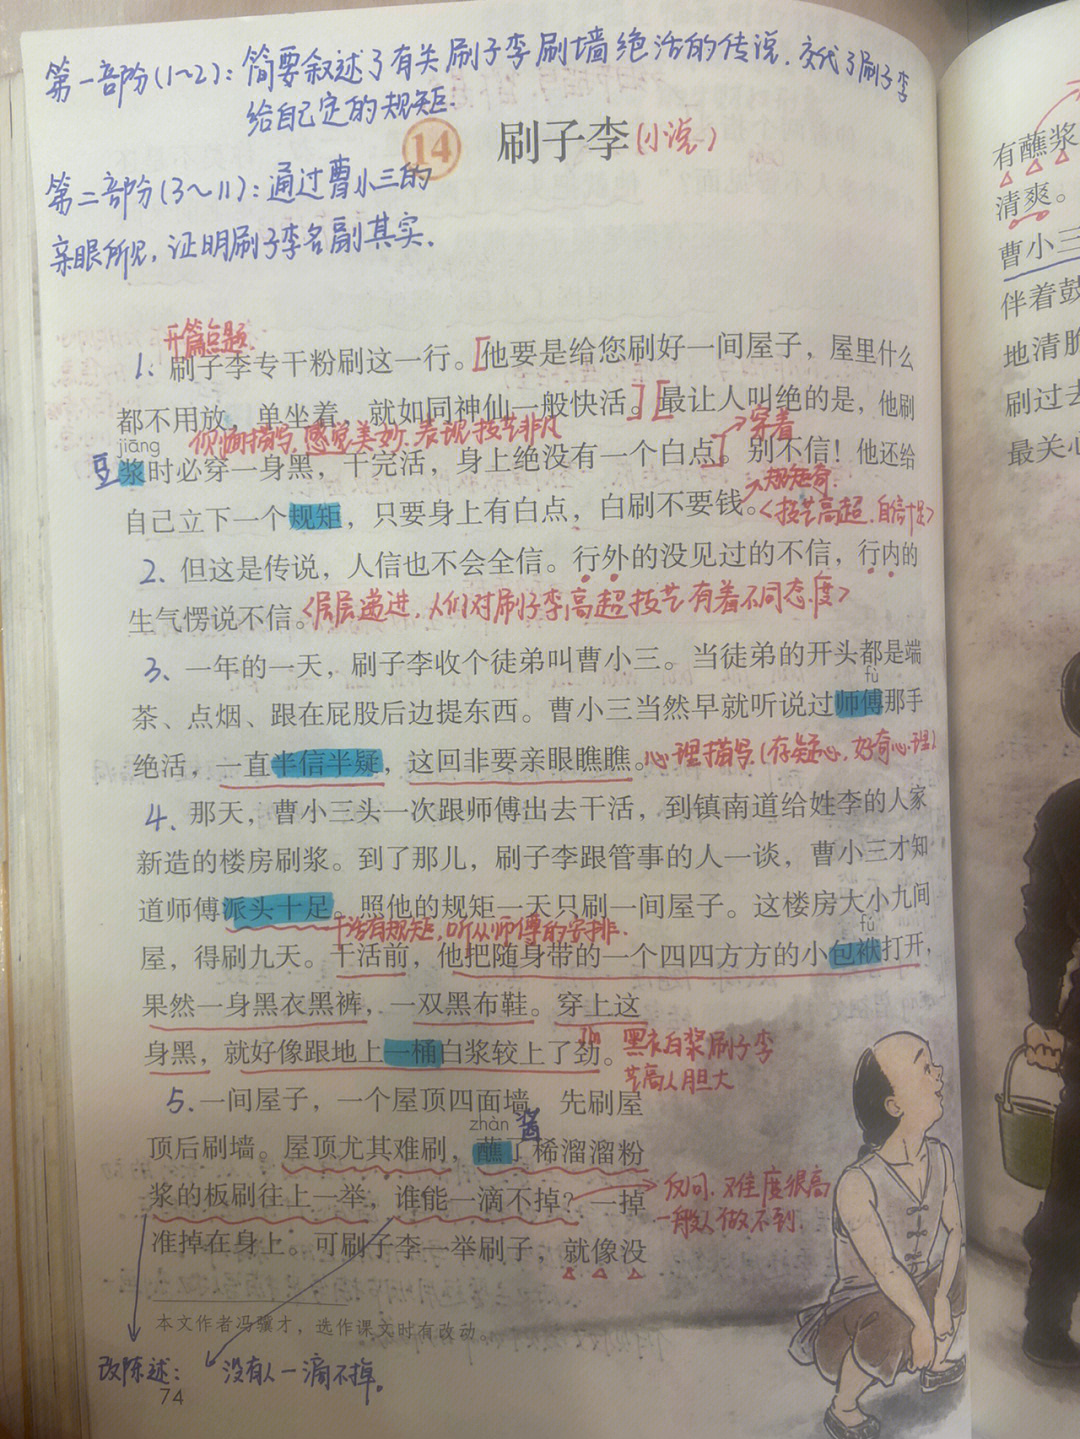 第一部分(1~2)：简要叙述了有关刷子李刷墙绝活的传说，交代了刷子李
给自己定的规矩.
14 刷子李(小说)
第二部分(3~11)：通过曹小三的
亲眼所见，证明刷子李名副其实.
开篇点题.
1、刷子李专干粉刷这一行。[他要是给您刷好一间屋子，屋里什么
都不用放，单坐着，就如同神仙一般快活。][最让人叫绝的是，他刷
jiāng
侧面描写，感觉美妙，表现技艺非凡
穿着
豆
浆时必穿一身黑，干完活，身上绝没有一个白点]。别不信！他还给
规矩奇
自己立下一个规矩，只要身上有白点，白刷不要钱。<技艺高超，自信十足>
2、但这是传说，人信也不会全信。行外的没见过的不信，行内的
生气愣说不信。<层层递进，人们对刷子李高超技艺有着不同态度>
3、一年的一天，刷子李收个徒弟叫曹小三。当徒弟的开头都是端
fù
茶、点烟、跟在屁股后边提东西。曹小三当然早就听说过师傅那手
绝活，一直半信半疑，这回非要亲眼瞧瞧。心理描写.(存疑心，好奇心理)
4、那天，曹小三头一次跟师傅出去干活，到镇南道给姓李的人家
新造的楼房刷浆。到了那儿，刷子李跟管事的人一谈，曹小三才知
道师傅派头十足。照他的规矩一天只刷一间屋子。这楼房大小九间
干活有规矩，听从师傅的安排.
fú
屋，得刷九天。干活前，他把随身带的一个四四方方的小包袱打开，
果然一身黑衣黑裤，一双黑布鞋。穿上这
身黑，就好像跟地上一桶白浆较上了劲。
黑衣白浆刷子李
艺高人胆大
5、一间屋子，一个屋顶四面墙，先刷屋
zhàn
酱
顶后刷墙。屋顶尤其难刷，蘸了稀溜溜粉
浆的板刷往上一举，谁能一滴不掉？一掉
反问，难度很高
一般人做不到.
准掉在身上。可刷子李一举刷子，就像没
本文作者冯骥才，选作课文时有改动。
改陈述：没有人一滴不掉。
74
有蘸浆
清爽。
曹小三
伴着鼓
地清脆
刷过去
最关心